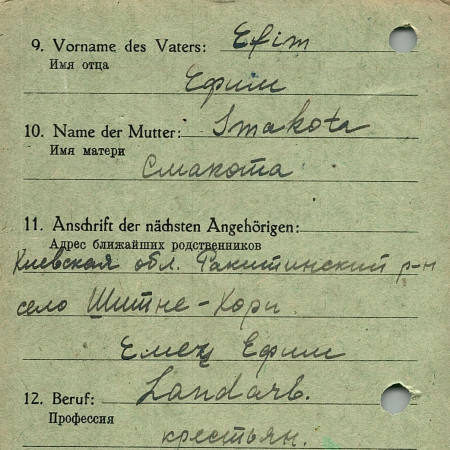 9. Vorname des Vaters: Efim
Имя отца
Ефим
10. Name der Mutter: Smakota
Имя матери
Смакота
11. Anschrift der nächsten Angehörigen:
Адрес ближайших родственников
Киевская обл. Ракитинский р-н
село Шитне-Гори.
Емец Ефим
12. Beruf: Landarb.
Профессия
крестьян.